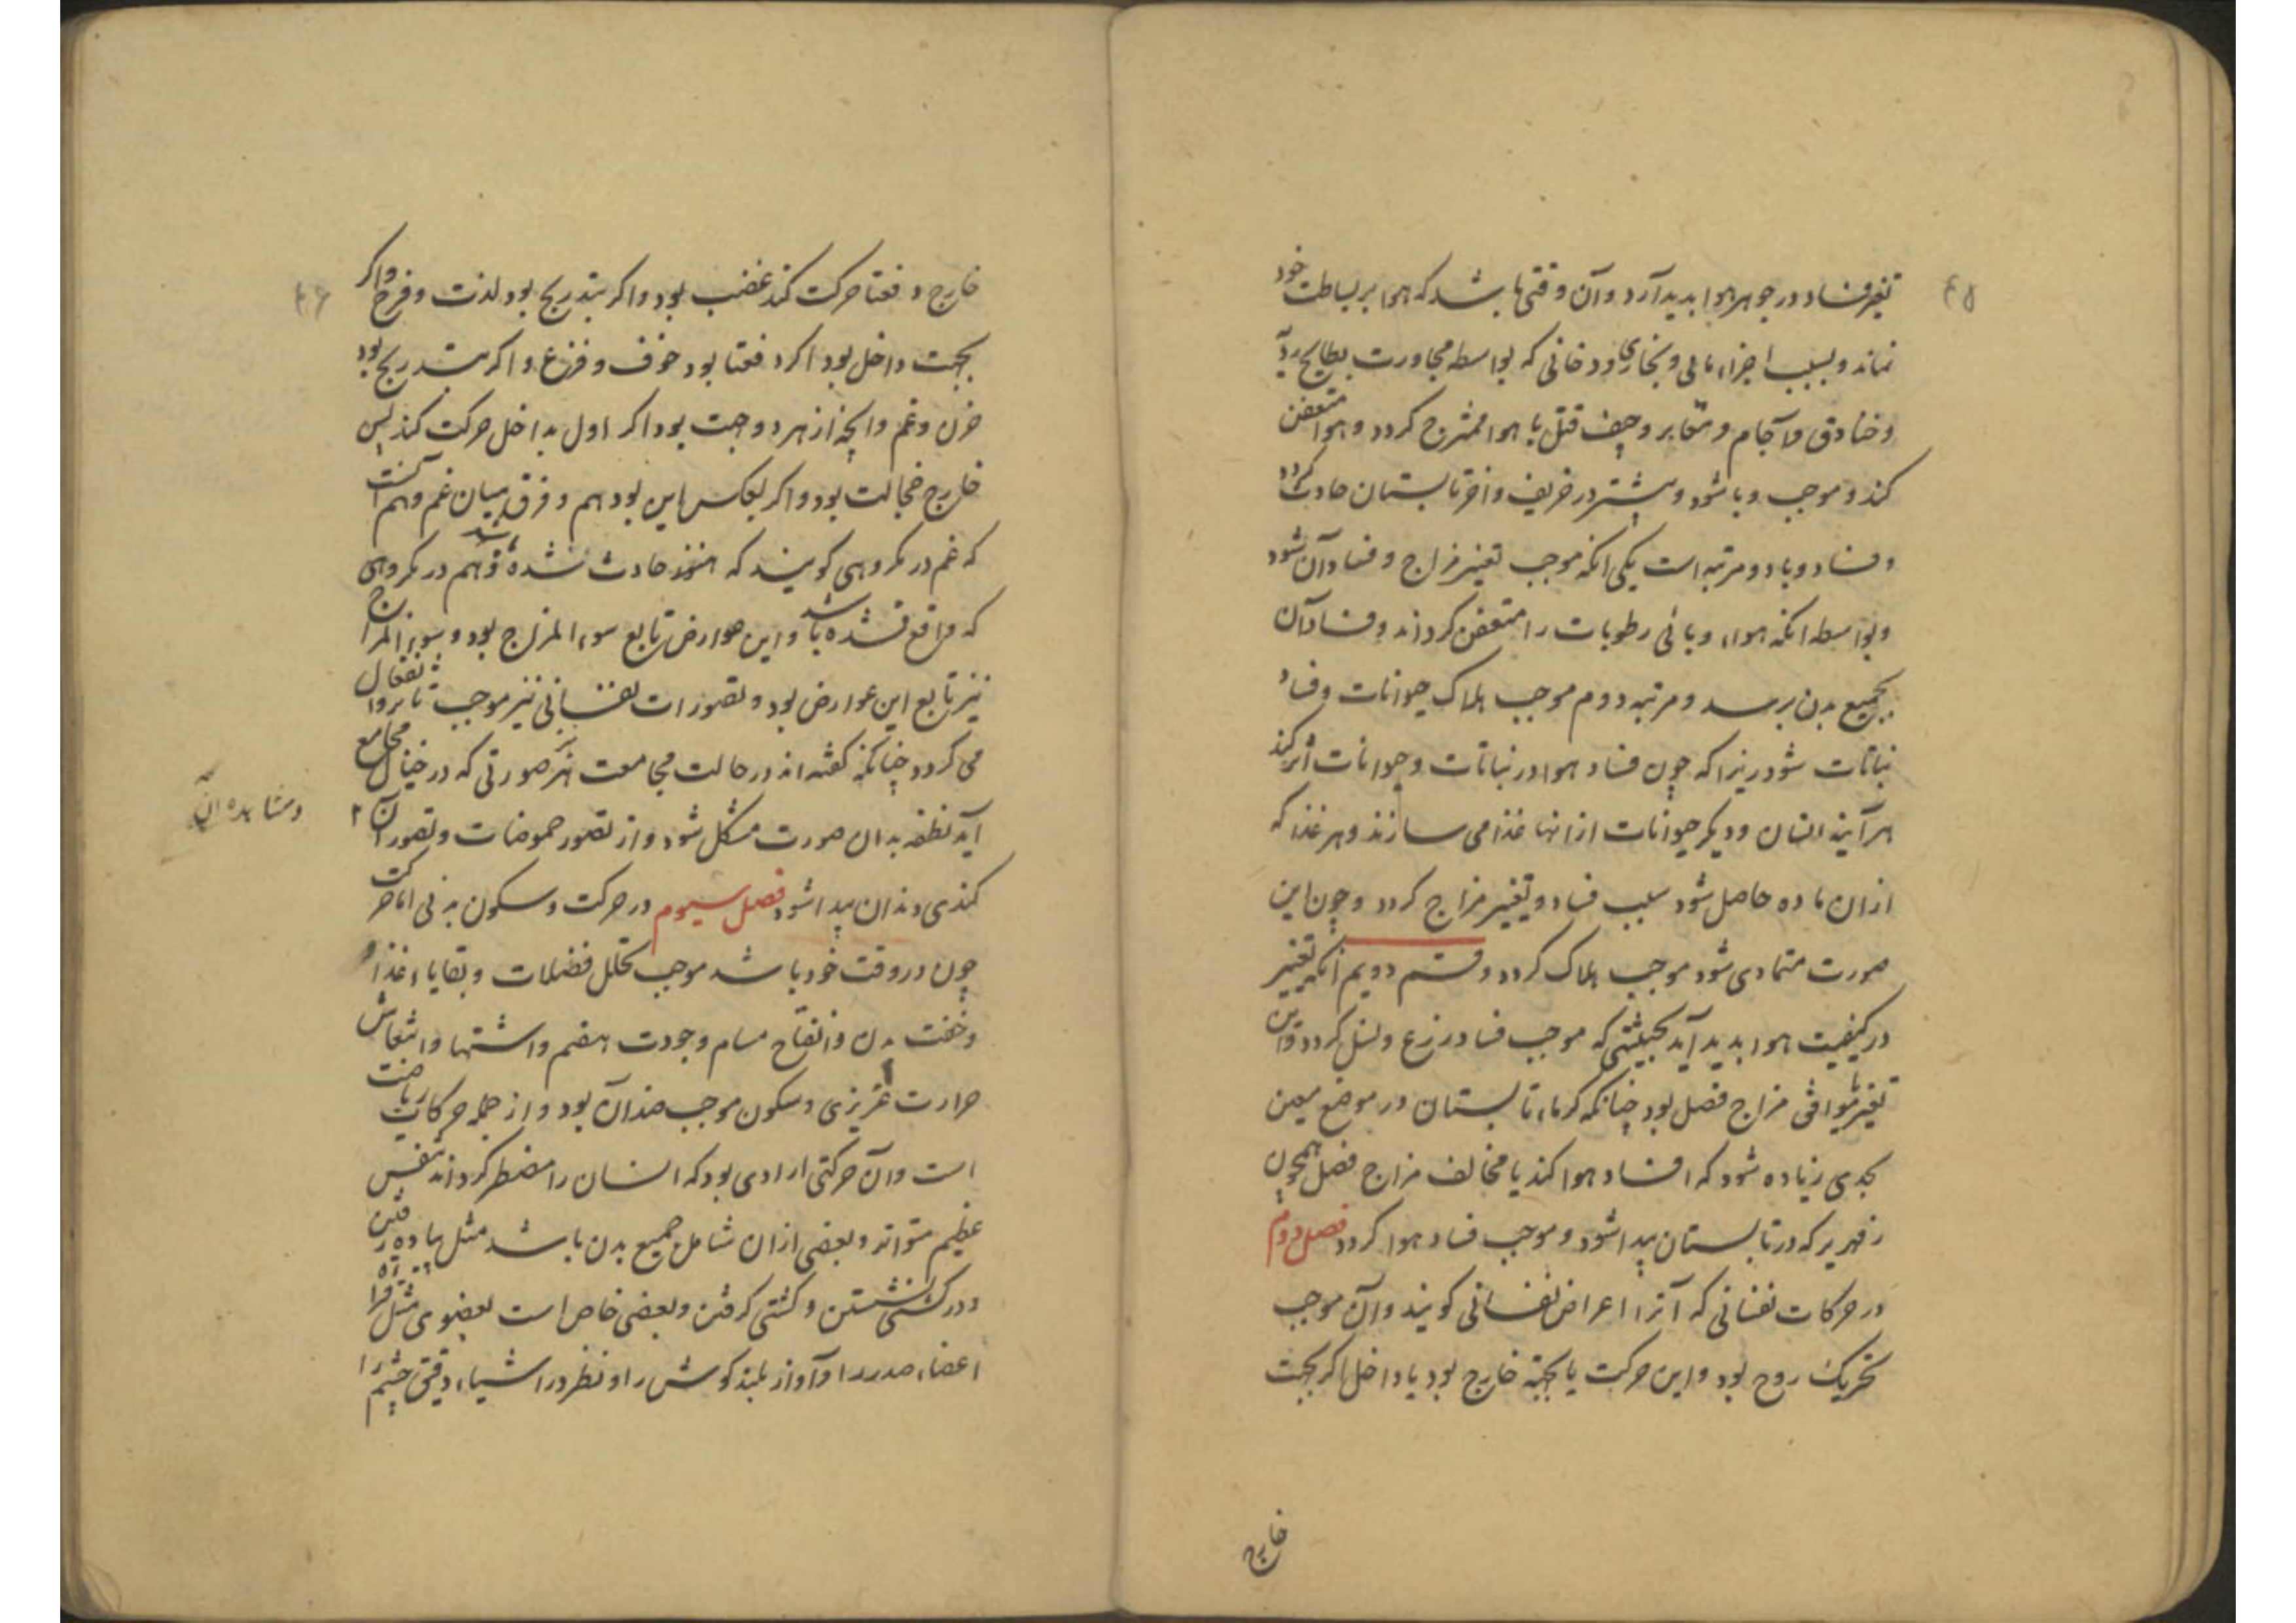 ۴۵
تغیر فساد در جوهر هوا بدید آرد و آن وقتی باشد که هوا بر بساطت خود
نماند و بسبب اجزاء مائی و بخاری و دخانی که بواسطه مجاورت بطایح ردیه
و خنادق و آجام و مقابر و جیف قتلی با هوا ممتزج کردد و هوا متعفن
کند و موجب وبا شود و بیشتر در خریف و آخر تابستان حادث کردد
و فساد وبا دو مرتبه است یکی انکه موجب تغییر مزاج و فساد آن شود
و بواسطه انکه هواء وبائی رطوبات را متعفن کرداند و فساد آن
بجمیع بدن برسد و مرتبه دوم موجب هلاک حیوانات و فساد
نباتات شود زیرا که چون فساد هوا در نباتات و حیوانات اثر کند
هر آینه انسان و دیکر حیوانات از انها غذا می سازند و هر غذا که
از ان ماده حاصل شود سبب فساد و تغییر مزاج کردد و چون این
صورت متمادی شود موجب هلاک کردد و قسم دویم انکه تغییر
در کیفیت هوا بدید آید بحیثیتی که موجب فساد زرع و نسل کردد و این
تغیر یا موافق مزاج فصل بود چنانکه کرماء تابستان در موضع معین
بحدی زیاده شود که افساد هوا کند یا مخالف مزاج فصل همچون
زمهریر که در تابستان پیدا شود و موجب فساد هوا کردد فصل دوم
در حرکات نفسانی که آنرا اعراض نفسانی کویند و آن موجب
تحریک روح بود و این حرکت یا بجهة خارج بود یا داخل اکر بجهت
خارج
۴۶
خارج دفعتا حرکت کند غضب بود و اکر بتدریج بود لذت و فرح و اکر
بجهت داخل بود اکر دفعتا بود خوف و فزع و اکر بتدریج بود
حزن و غم و انچه از هر دو جهت بود اکر اول بداخل حرکت کند پس
خارج خجالت بود و اکر بعکس این بود هم و فرق میان غم و هم آنست
که غم در مکروهی کویند که هنوز حادث نشده باشد و هم در مکروهی
که واقع نشده باشد و این عوارض تابع سوء المزاج بود و سوء المزاج
نیز تابع این عوارض بود و تصورات نفسانی نیز موجب تاثر و انفعال
می کردد چنانکه کفته اند در حالت مجامعت هر صورتی که در خیال مجامع
آید نطفه بدان صورت مشکل شود و از تصور حموضات و تصور آن ۲
و مشاهده آن
کندی دندان پیدا شود فصل سیوم در حرکت و سکون بدنی اما حرکت
چون در وقت خود باشد موجب تحلل فضلات و بقایاء غذا
و خفت بدن و انفتاح مسام و جودت هضم و اشتها و انتعاش
حرارت غریزی و سکون موجب ضد آن بود و از جمله حرکات ریاضت
است و آن حرکتی ارادی بود که انسان را مضطر کرداند بتنفس
عظیم متواتر و بعضی از ان شامل جمیع بدن باشد مثل پیاده رفتن
و در کشتی نشستن و کشتی کرفتن و بعضی خاص است بعضوی مثل قراءة
اعضاء صدر را و آواز بلند کوش را و نظر در اشیاء دقیق چشم را